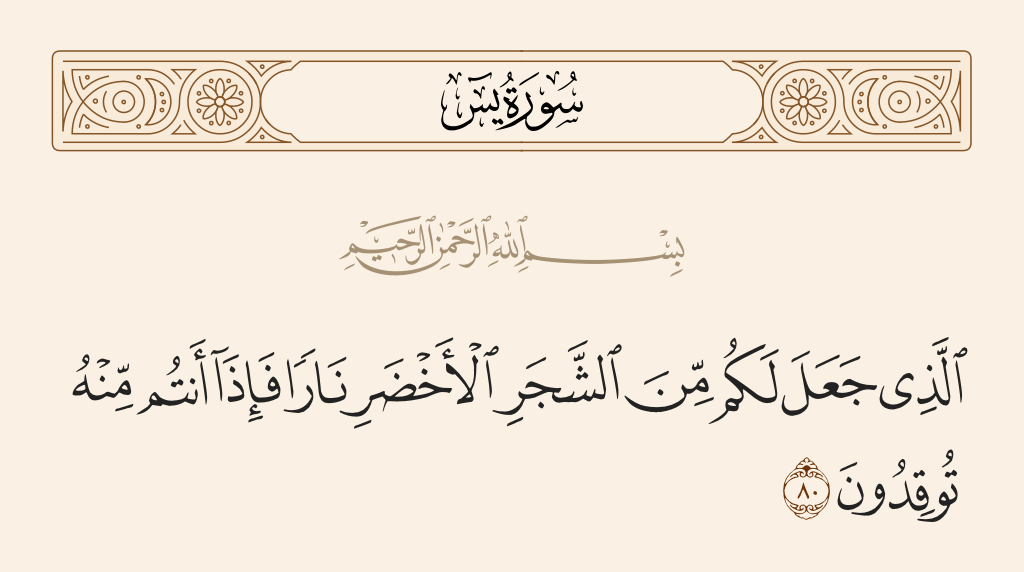 سُورَةُ يسٓ
بِسْمِ ٱللَّهِ ٱلرَّحْمَٰنِ ٱلرَّحِيمِ
ٱلَّذِى جَعَلَ لَكُم مِّنَ ٱلشَّجَرِ ٱلْأَخْضَرِ نَارًا فَإِذَآ أَنتُم مِّنْهُ
تُوقِدُونَ ٨٠